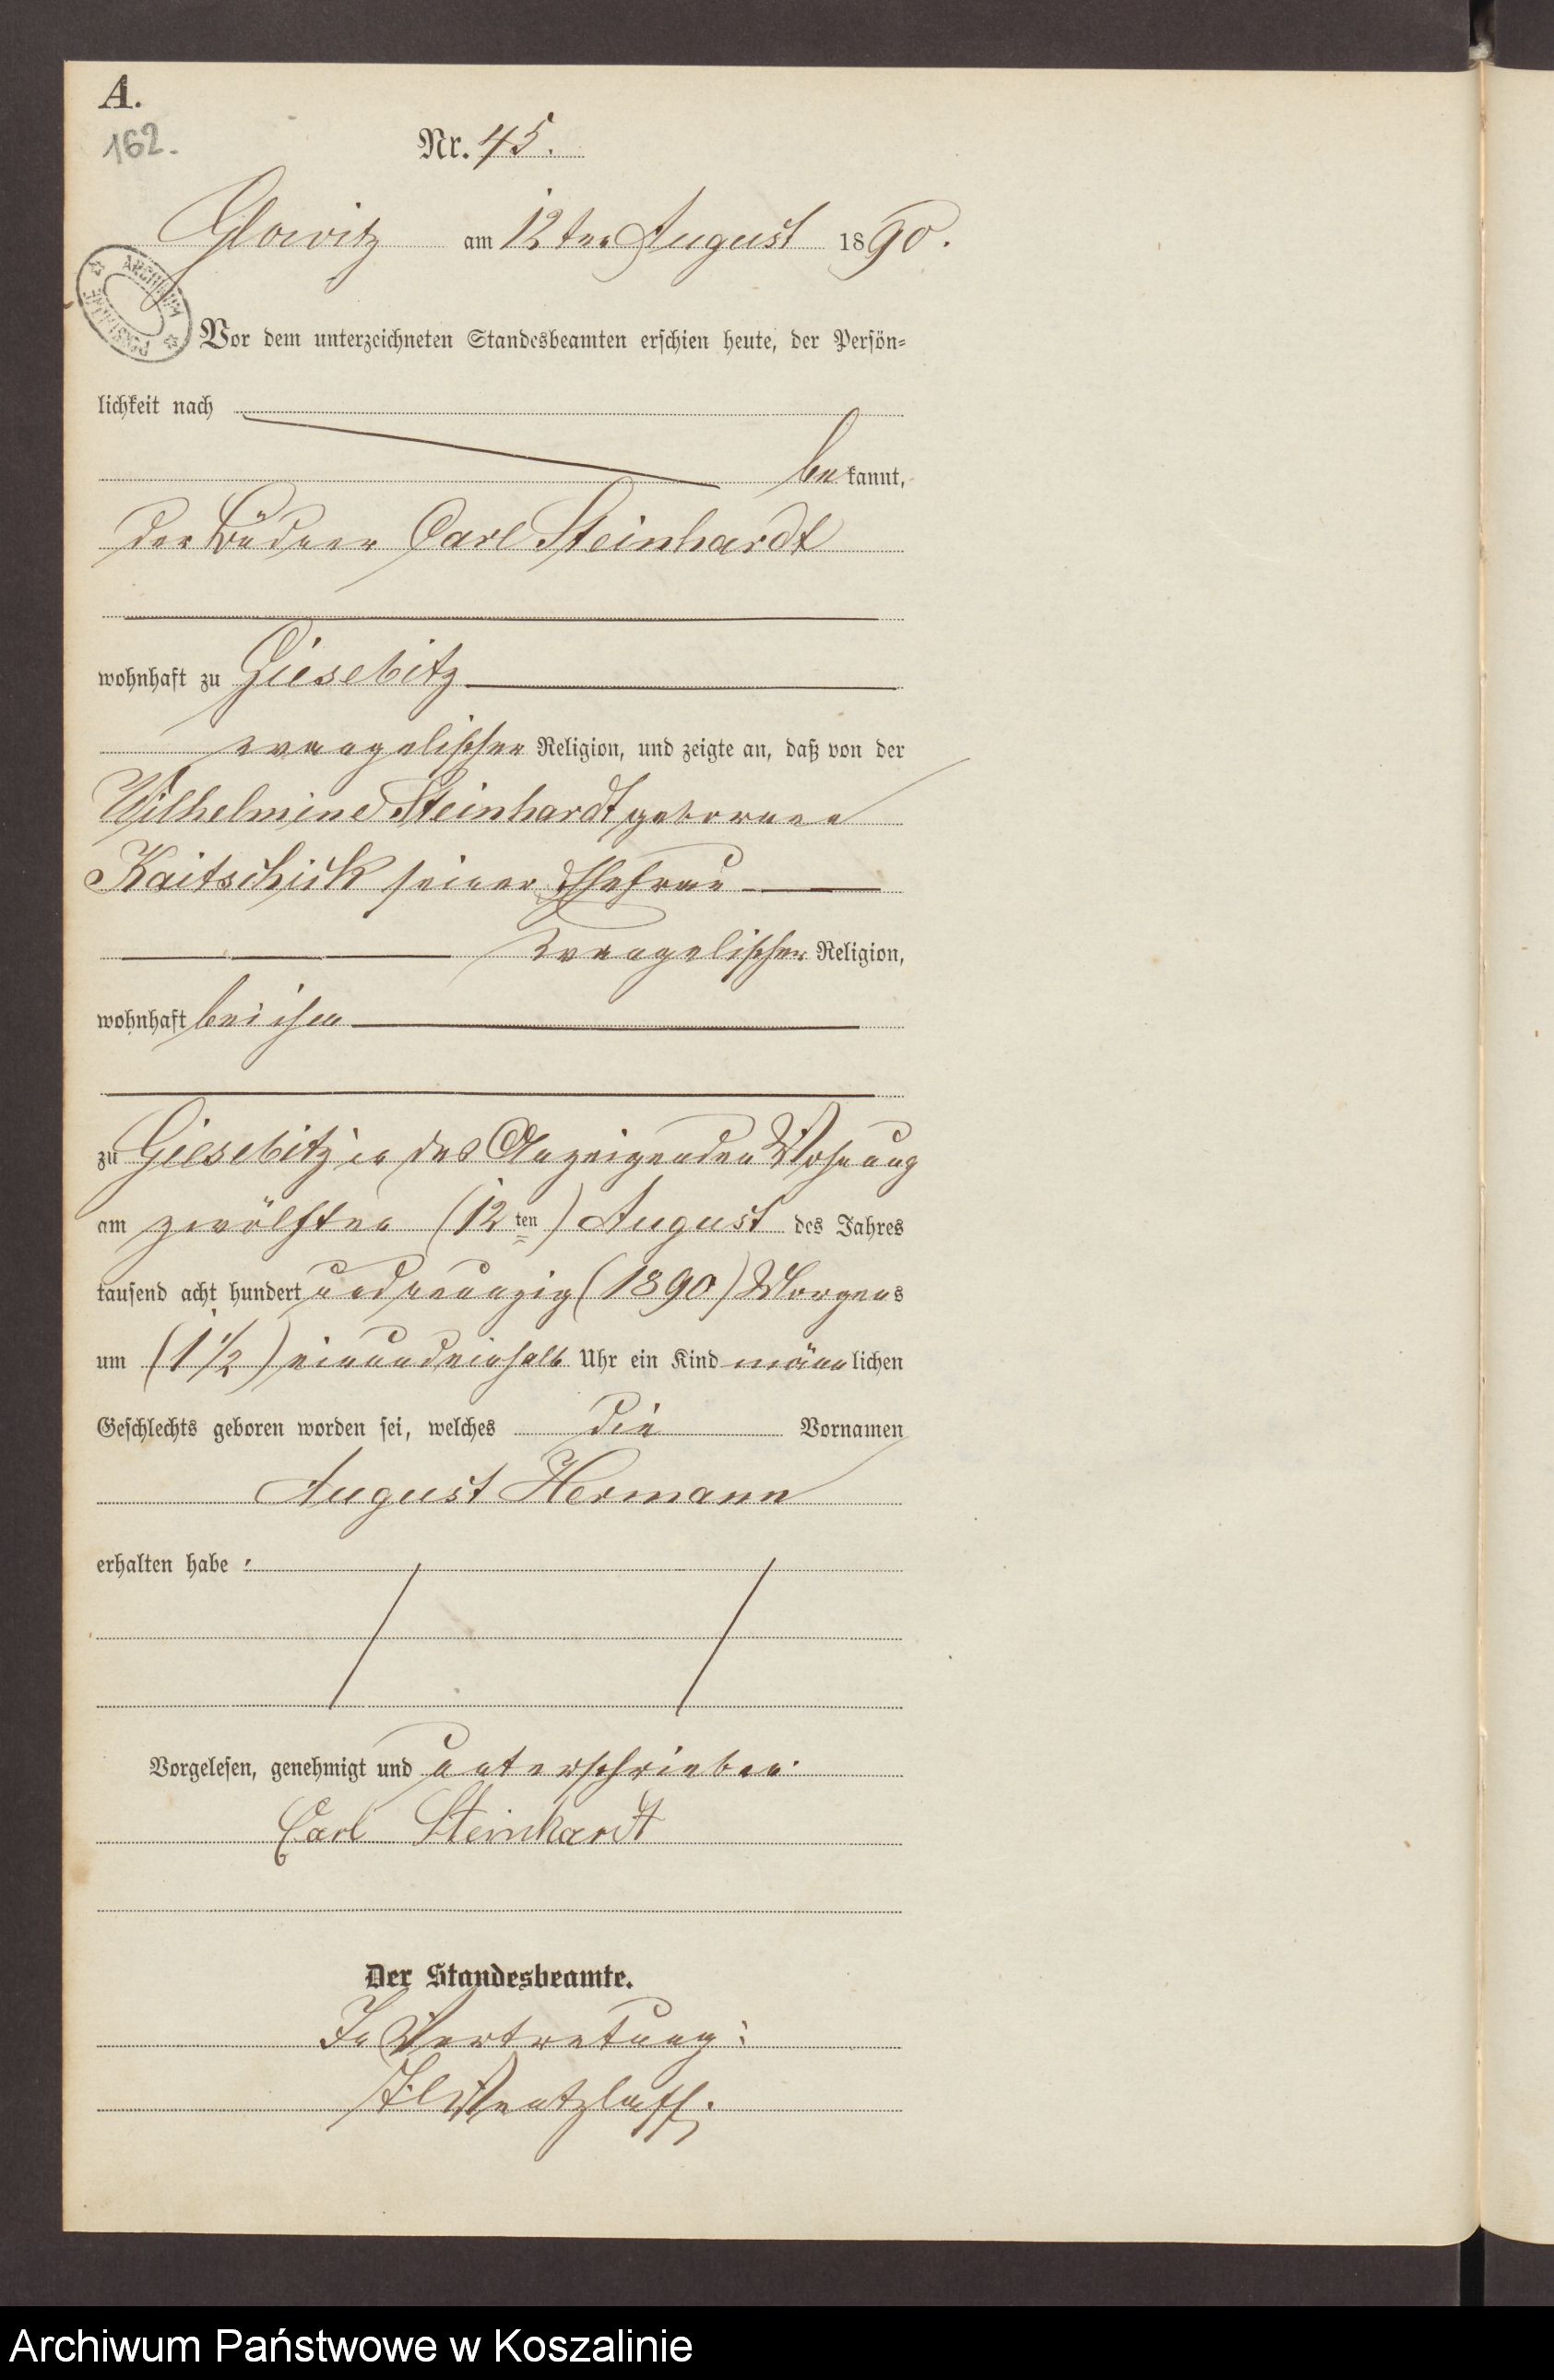 A.
162.
Nr. 45.
Glowitz am 12ten August 1890.
ARCHIWUM PAŃSTWOWE
Vor dem unterzeichneten Standesbeamten erschien heute, der Persön=
lichkeit nach
bekannt,
der Büdner Carl Steinhardt
wohnhaft zu Giesebitz
evangelischer Religion, und zeigte an, daß von der
Wilhelmine Steinhardt geborene
Kaitschick seiner Ehefrau
evangelischer Religion,
wohnhaft bei ihm
zu Giesebitz in des Anzeigenden Wohnung
am zwölften (12ten) August des Jahres
tausend acht hundert und neunzig (1890) Morgens
um (1 1/2) einundeinhalb Uhr ein Kind männlichen
Geschlechts geboren worden sei, welches die Vornamen
August Hermann
erhalten habe :
Vorgelesen, genehmigt und unterschrieben.
Carl Steinhardt
Der Standesbeamte.
In Vertretung:
Wentzlaff.
Archiwum Państwowe w Koszalinie